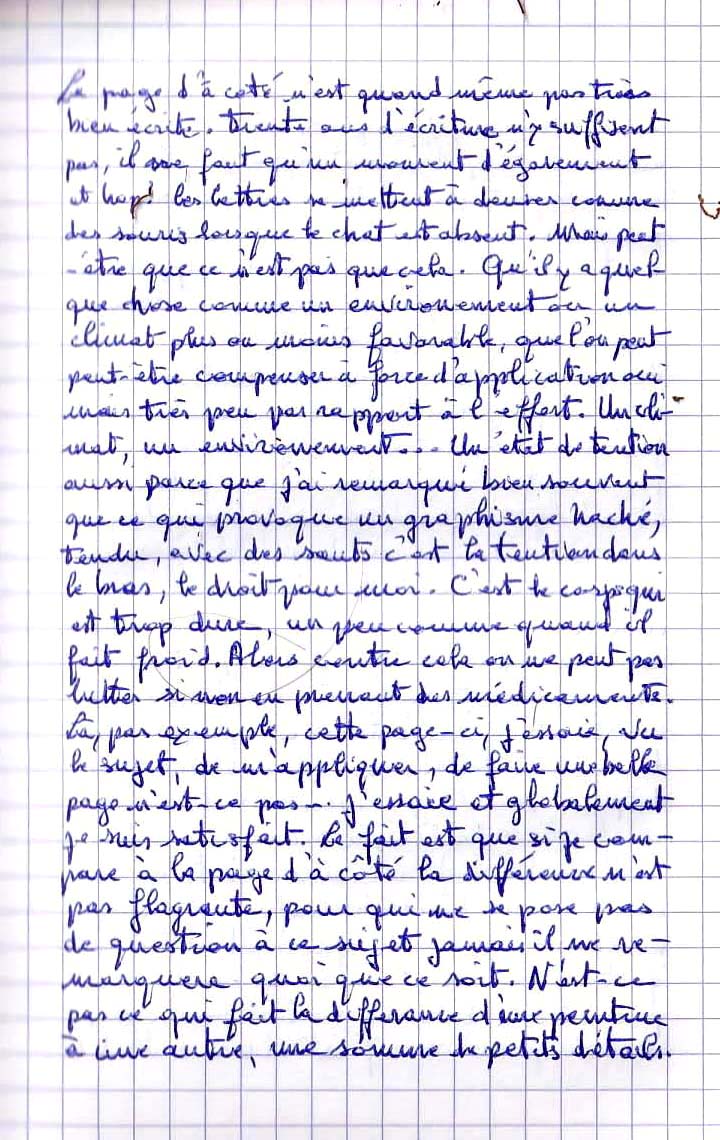 La page d'à coté n'est quand même pas très
bien écrite. Trente ans d'écriture n'y suffisent
pas, il ne faut qu'un moment d'égarement
et hop! les lettres se mettent à danser comme
des souris lorsque le chat est absent. Mais peut
-être que ce n'est pas que cela. Qu'il y a quel-
que chose comme un environement ou un
climat plus ou moins favorable, que l'on peut
peut-être compenser à force d'application oui
mais très peu par rapport à l'effort. Un cli-
mat, un environement... Un état de tention
aussi parce que j'ai remarqué bien souvent
que ce qui provoque un graphisme haché,
tendu, avec des sauts c'est la tention dans
le bras, le droit pour moi. C'est le corps qui
est trop dure, un peu comme quand il
fait froid. Alors contre cela on ne peut pas
lutter sinon en prenant des médicaments.
Là, par exemple, cette page-ci, j'essaie, vu
le sujet, de m'appliquer, de faire une belle
page n'est-ce pas... j'essaie et globalement
je suis satisfait. Le fait est que si je com-
pare à la page d'à côté la différence n'est
pas flagrante, pour qui ne se pose pas
de question à ce sujet jamais il ne re-
marquera quoi que ce soit. N'est-ce
pas ce qui fait la differance d'une peinture
à une autre, une somme de petits détails.